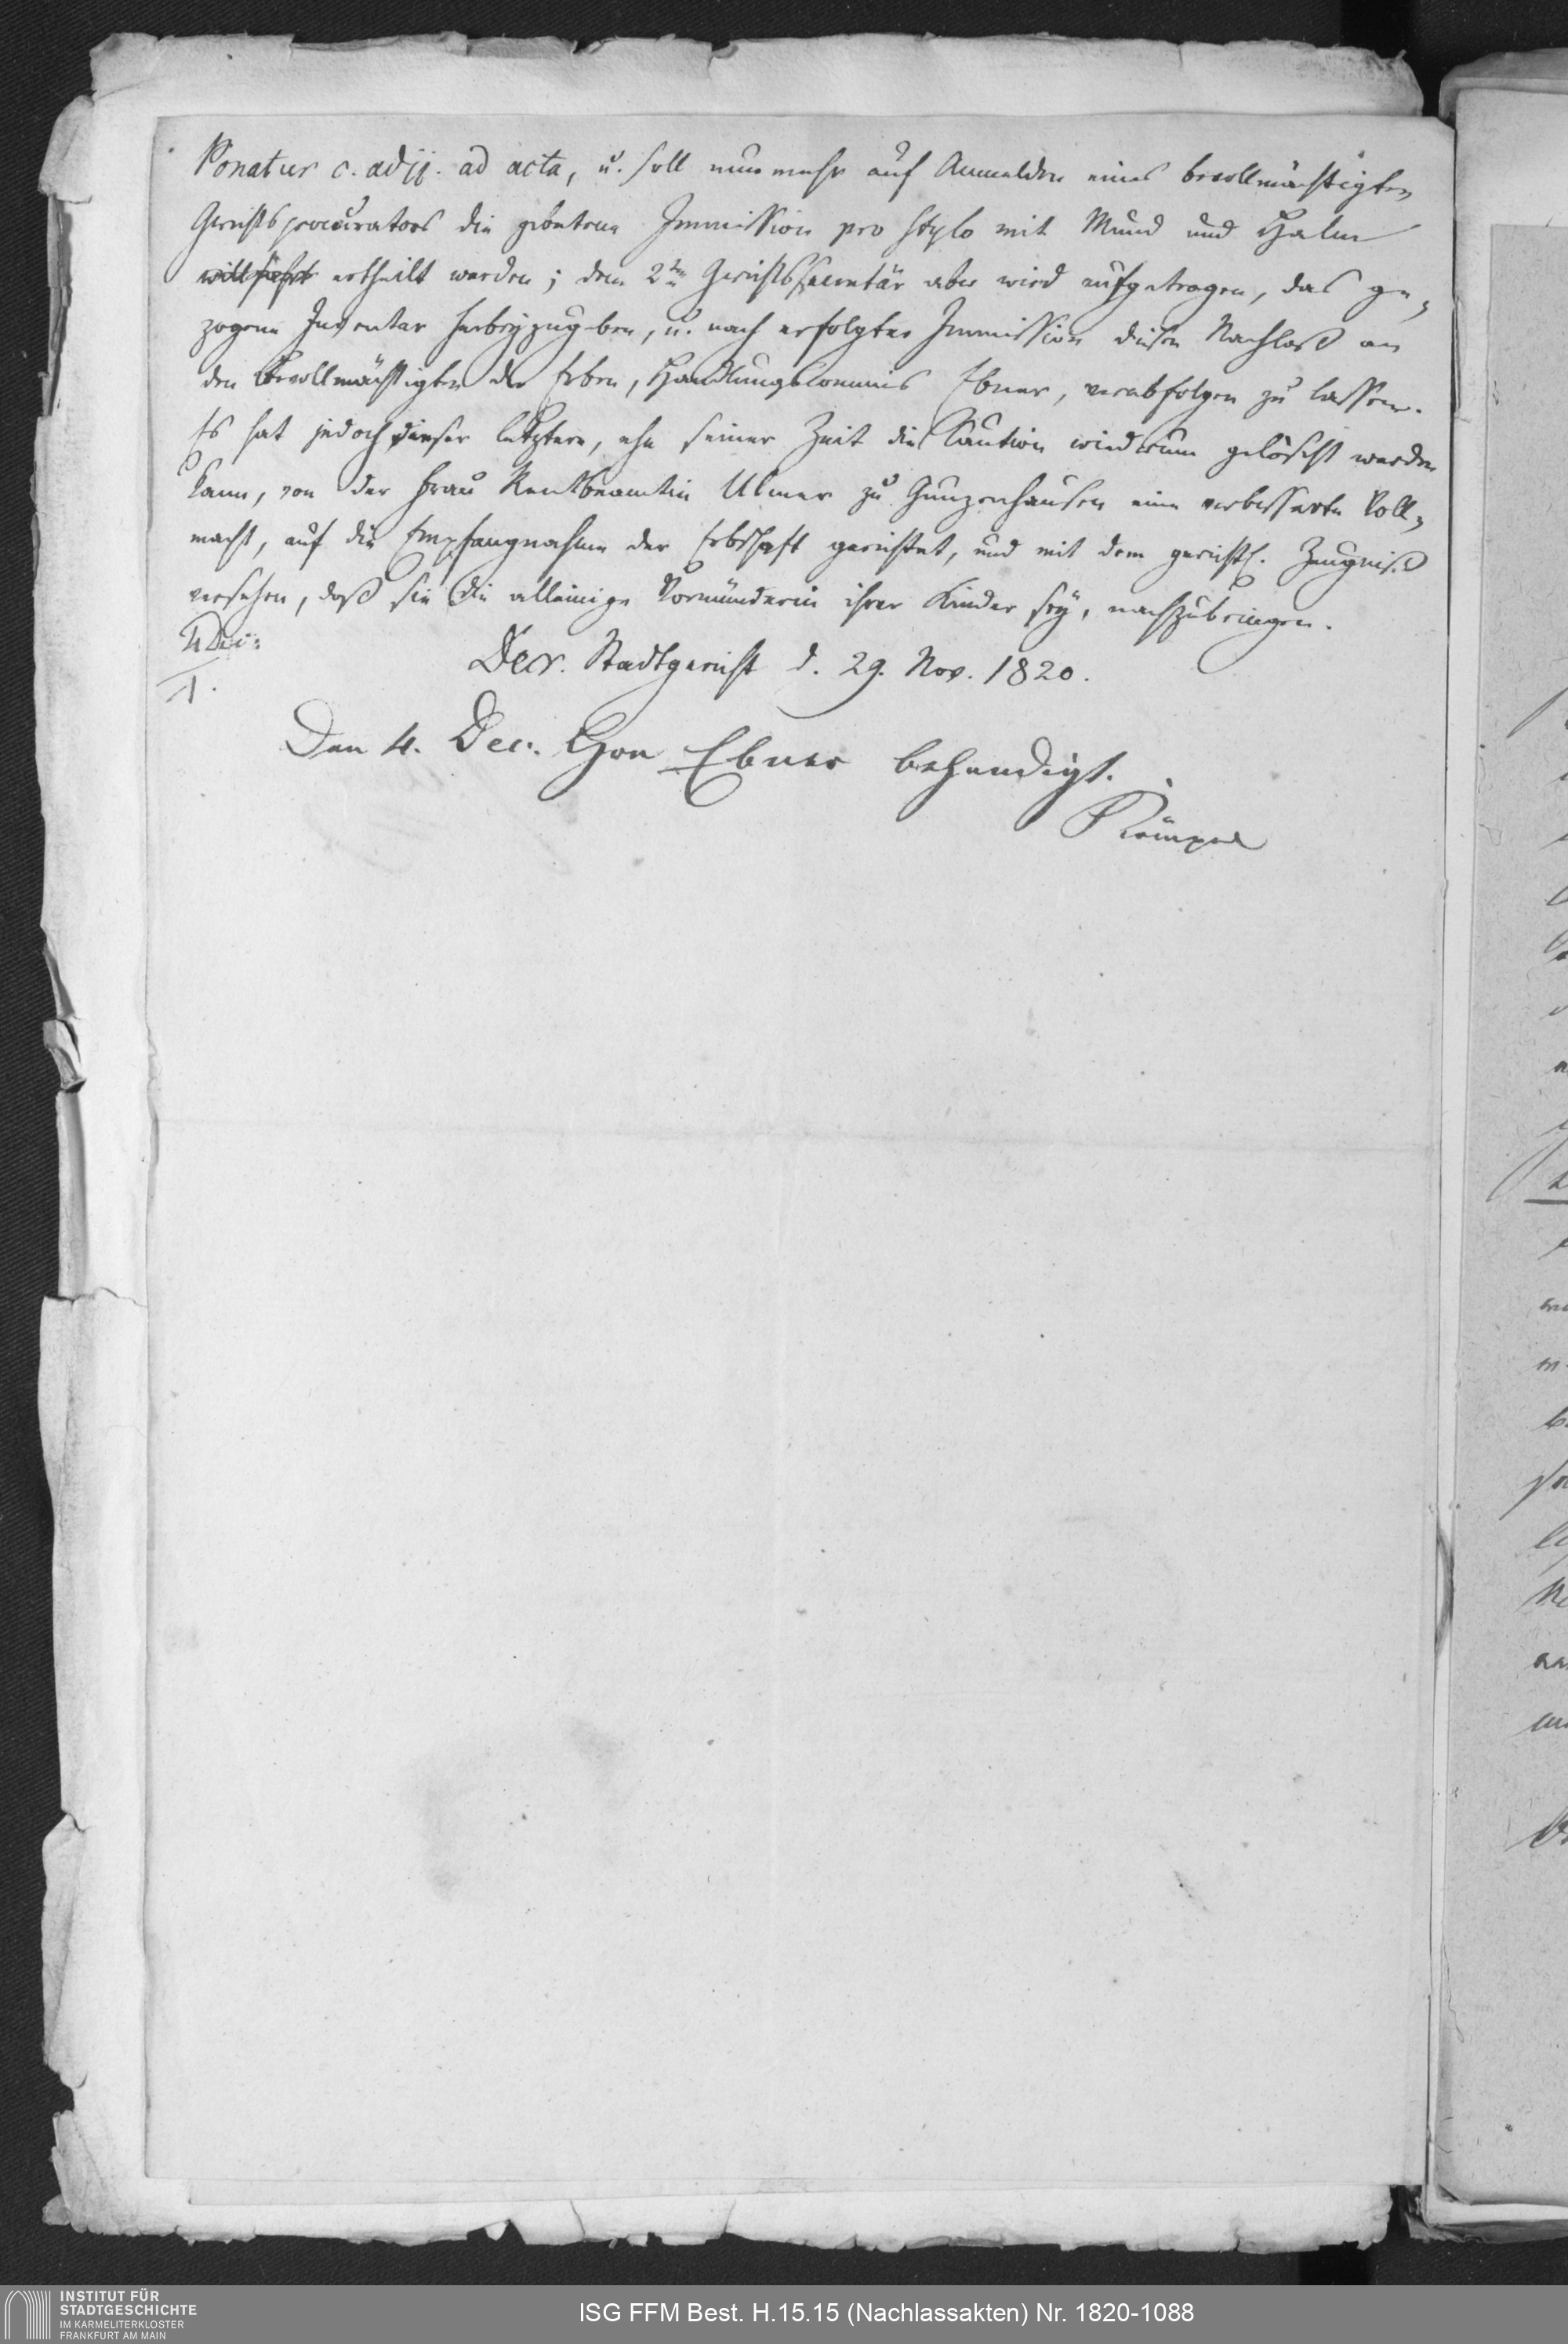 Ponatur c. adjj. ad acta, u. soll nunmehr auf Anmelden eines bevollmächtigten
Gerichtsprocurators die gebetene Immission pro stylo mit Mund und Halm
willfahrt ertheilt werden; dem 2ten Gerichtssecretär aber wird aufgetragen, das ge-
zogene Inventar herbeyzugeben, u. nach erfolgter Immission diesen Nachlaß an
den Bevollmächtigten der Erben, Handlungscommis Ebner, verabfolgen zu lassen.
Es hat jedoch dieser letztere, ehe seiner Zeit die Caution wiederum gelöscht werden
kann, von der Frau Rentbeamtin Ulmer zu Gunzenhausen eine verbesserte Voll-
macht, auf die Empfangnahme der Erbschaft gerichtet, und mit dem gerichtl. Zeugniß
versehen, daß sie die alleinige Vormünderin ihrer Kinder sey, nachzubringen.
Decr. Stadtgericht d. 29. Nov. 1820.
Den 4. Dec. Ebner behendigt.
INSTITUT FÜR
STADTGESCHICHTE
IM KARMELITERKLOSTER
FRANKFURT AM MAIN
ISG FFM Best. H.15.15 (Nachlassakten) Nr. 1820-1088